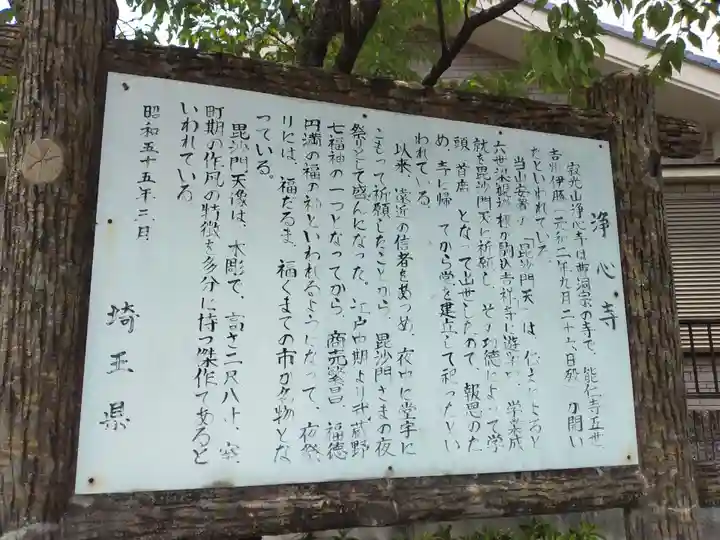 浄心寺
寂光山浄心寺は曹洞宗の寺で、能仁寺五世
吉州伊豚（元和二年九月二十六日歿）が開い
たといわれている。
当山安置の「毘沙門天」は、伝えによると
六世が駒込吉祥寺に遊学中、学業成
就を毘沙門天に祈願し、その功徳によって学
頭（首席）となって出世したので、報恩のた
め、寺に帰ってから堂を建立して祀ったとい
われている。
以来、遠近の信者をあつめ、夜中に堂宇に
こもって祈願したことから、毘沙門さまの夜
祭りとして盛んになった。江戸中期より武蔵野
七福神の一つとなってから、商売繁昌、福徳
円満の福の神といわれるようになって、夜祭
りには、福だるま、福くまでの市が名物とな
っている。
毘沙門天像は、木彫で、高さ二尺八寸、室
町期の作風の特徴を多分に持つ傑作であると
いわれている
昭和五十五年三月
埼玉県